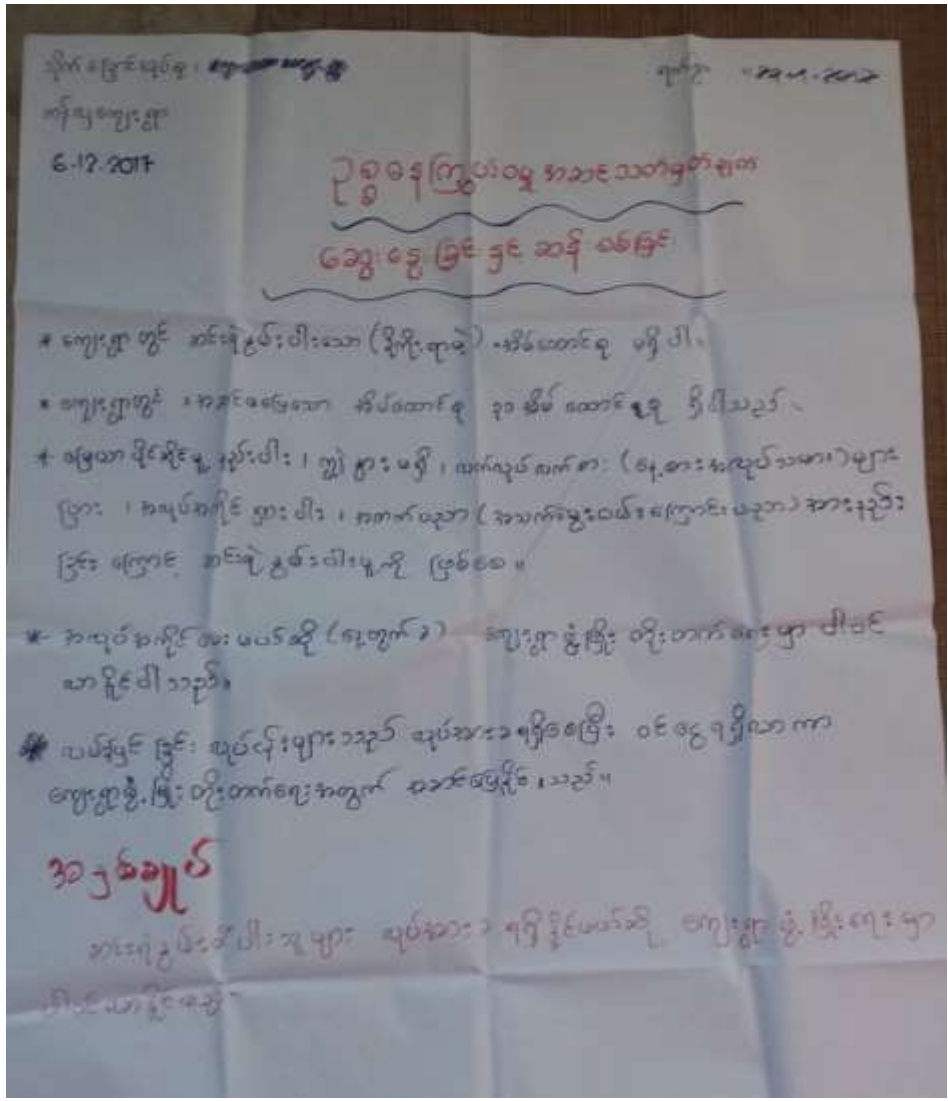 ရက်စွဲ
ကျေးရွာ
6.12.2017
ဥစ္စာဓနကြွယ်ဝမှု အဆင့်သတ်မှတ်ချက်
ဆွေးနွေးခြင်း နှင့် ဆန်းစစ်ခြင်း
* ကျေးရွာတွင် ဆင်းရဲနွမ်းပါးသော (ခိုကိုးရာမဲ့) အိမ်ထောင်စု မရှိပါ။
* ကျေးရွာတွင် အဆင်မပြေသော အိမ်ထောင်စု ၃၁ အိမ်ထောင်စု ရှိပါသည်။
* မြေယာပိုင်ဆိုင်မှု နည်းပါး၊ ကျွဲ နွား မရှိ၊ လက်လုပ်လက်စား (နေ့စားအလုပ်သမား) များ
ပြား၊ အလုပ်အကိုင် ရှားပါး၊ အတတ်ပညာ (အသက်မွေးဝမ်းကြောင်းပညာ) အားနည်း
ခြင်းကြောင့် ဆင်းရဲနွမ်းပါးမှုကို ဖြစ်စေ။
* အလုပ်အကိုင်ပေးမယ်ဆို (နေ့တွက်ခ) ကျေးရွာဖွံ့ဖြိုးတိုးတက်ရေးမှာ ပါဝင်
လာနိုင်ပါသည်။
* လမ်းခင်းခြင်း လုပ်ငန်းများသည် လုပ်အားခရရှိစေပြီး ဝင်ငွေရရှိလာကာ
ကျေးရွာဖွံ့ဖြိုးတိုးတက်ရေးအတွက် အဆင်ပြေနိုင်သည်။
အနှစ်ချုပ်
ဆင်းရဲနွမ်းပါးသူများ လုပ်အားခ ရရှိနိုင်မယ်ဆို ကျေးရွာဖွံ့ဖြိုးရေးမှာ
ပါဝင်လာနိုင်